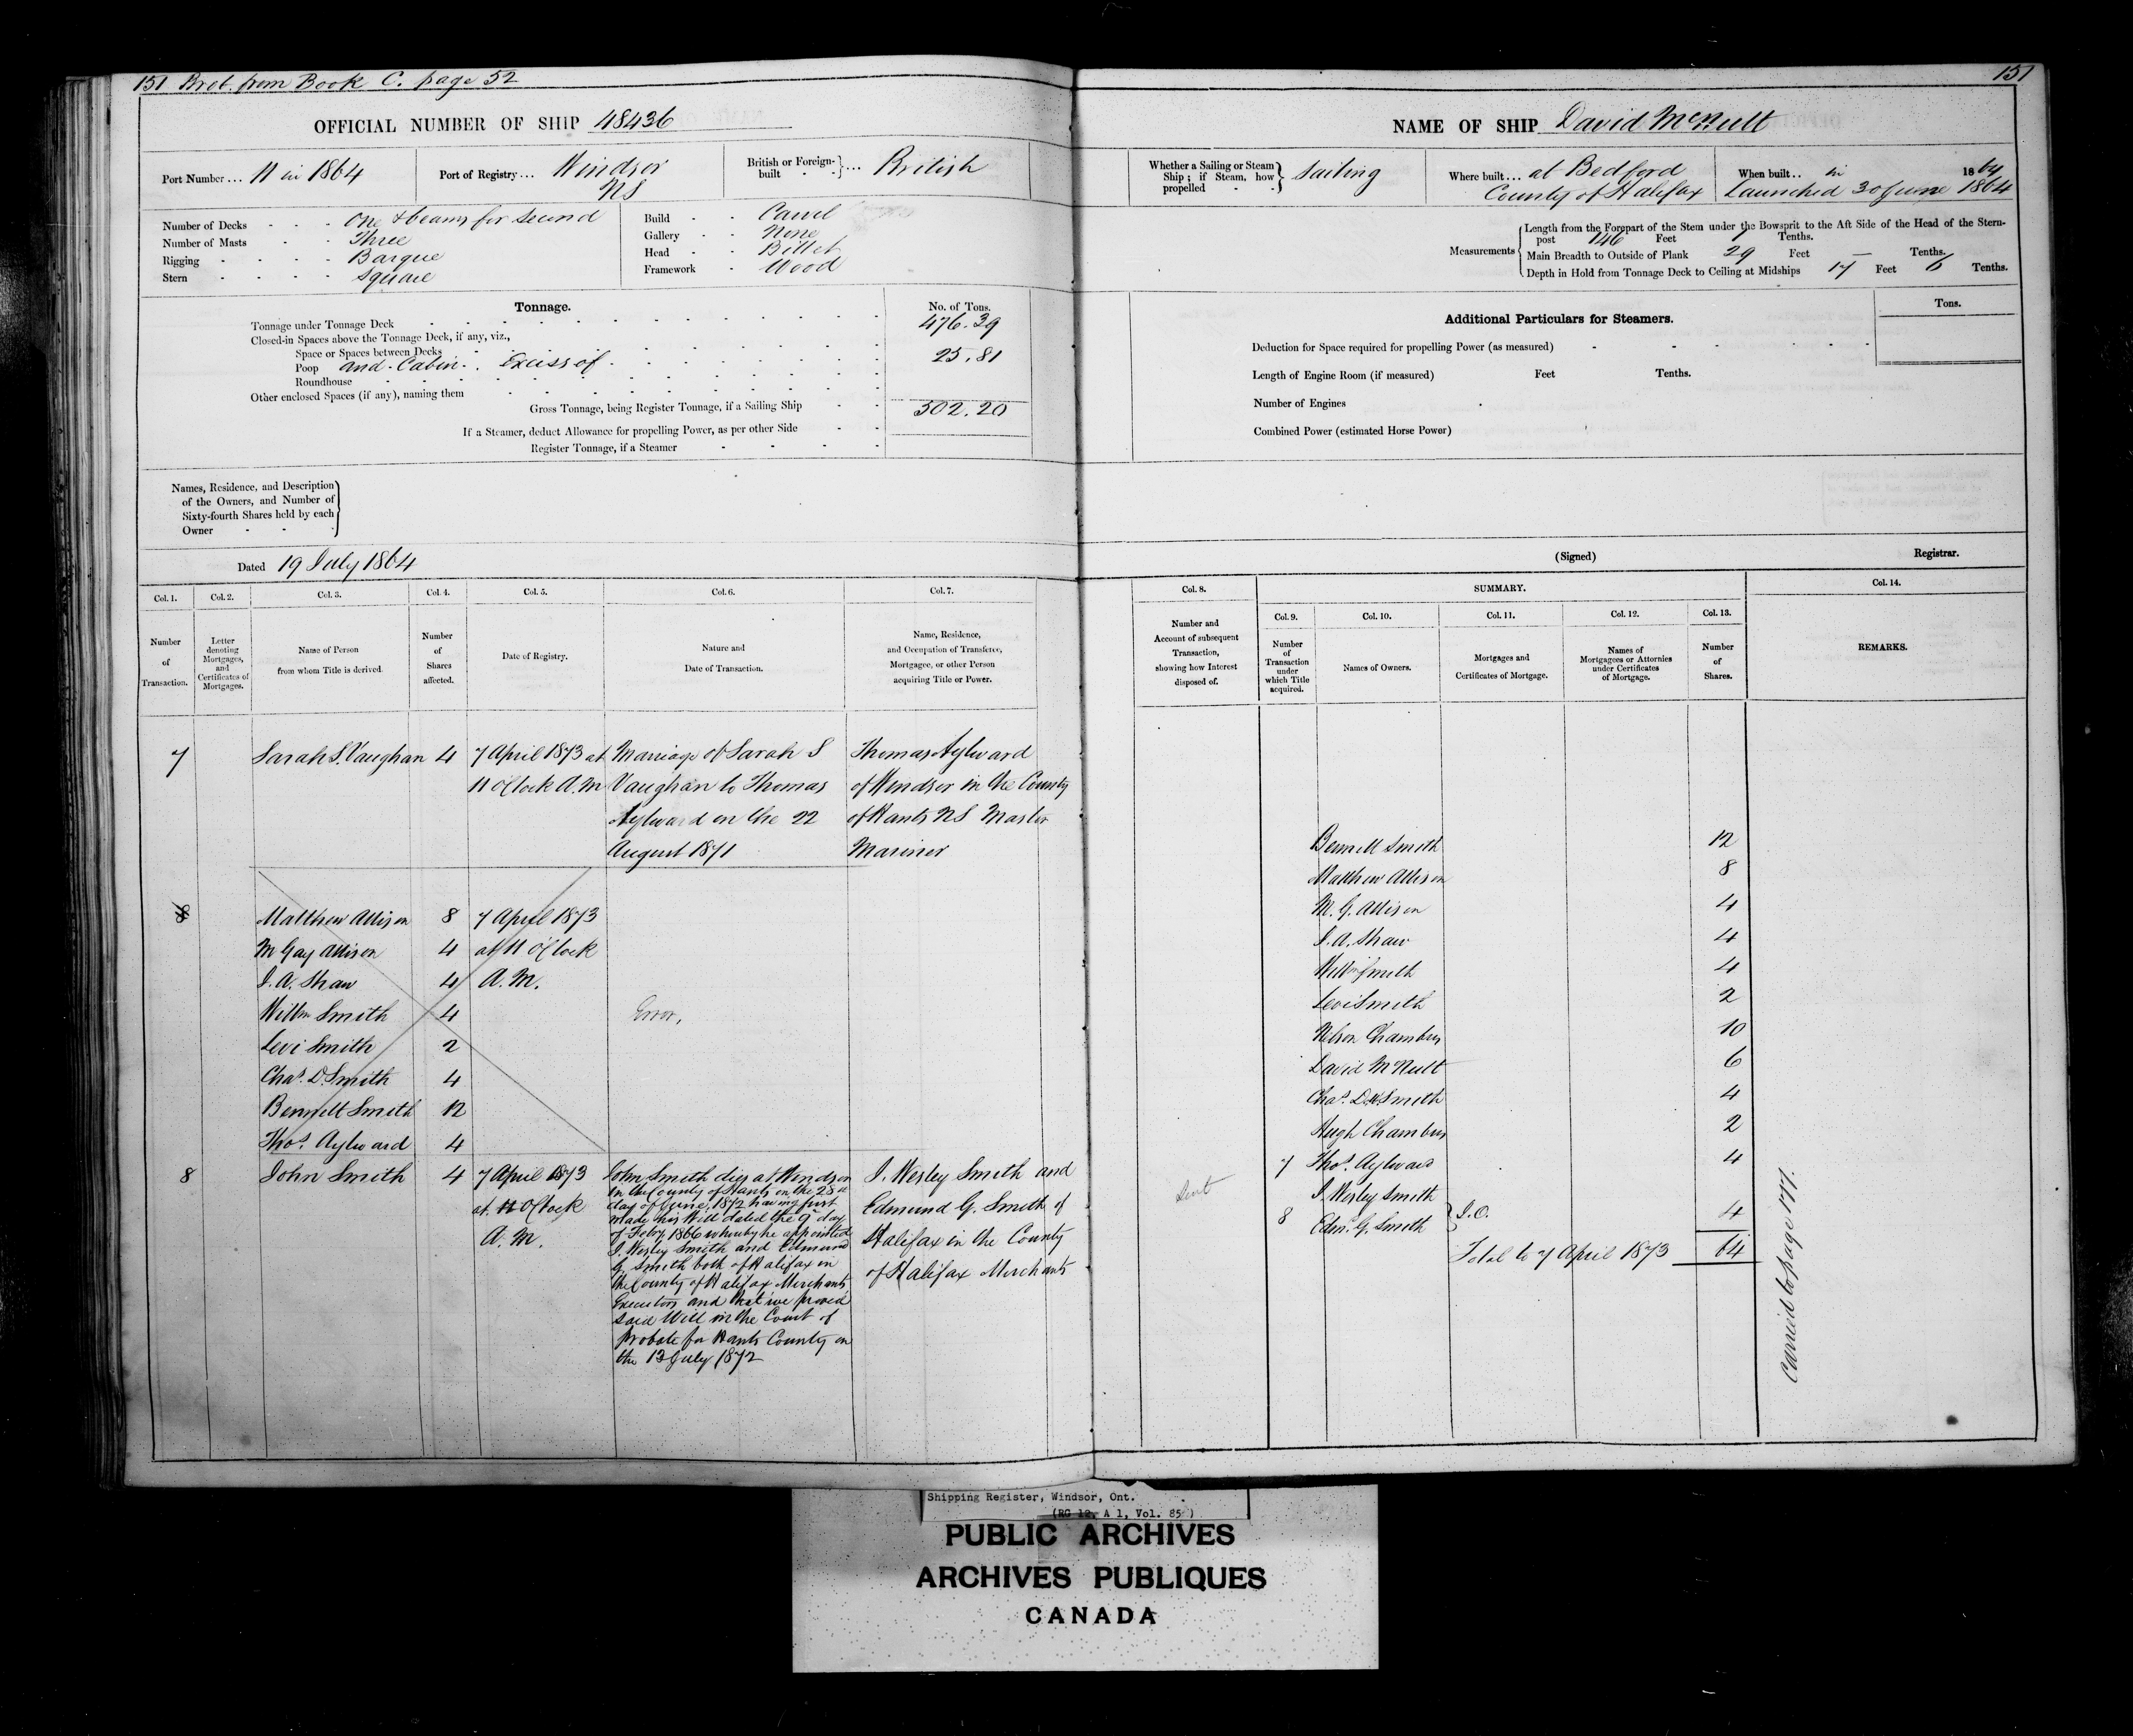 151 Brot. from Book C. page 52
151
OFFICIAL NUMBER OF SHIP 48436
NAME OF SHIP David McNutt
Port Number... 11 in 1864
Port of Registry... Windsor NS
British or Foreign-built } ... British
Whether a Sailing or Steam Ship; if Steam, how propelled } Sailing
Where built... at Bedford County of Halifax
When built.. in 1864
Launched 30 June 1864
Number of Decks One & beams for second
Number of Masts Three
Rigging Barque
Stern Square
Build Carvel
Gallery None
Head Billet
Framework Wood
Measurements
Length from the Forepart of the Stem under the Bowsprit to the Aft Side of the Head of the Stern-
post 146 Feet 7 Tenths.
Main Breadth to Outside of Plank 29 Feet Tenths.
Depth in Hold from Tonnage Deck to Ceiling at Midships 17 Feet 6 Tenths.
Tonnage.
No. of Tons.
Tonnage under Tonnage Deck 476.39
Closed-in Spaces above the Tonnage Deck, if any, viz.,
Space or Spaces between Decks
Poop and Cabin. Excess of 25.81
Roundhouse
Other enclosed Spaces (if any), naming them
Gross Tonnage, being Register Tonnage, if a Sailing Ship 502.20
If a Steamer, deduct Allowance for propelling Power, as per other Side
Register Tonnage, if a Steamer
Additional Particulars for Steamers.
Tons.
Deduction for Space required for propelling Power (as measured)
Length of Engine Room (if measured) Feet Tenths.
Number of Engines
Combined Power (estimated Horse Power)
Names, Residence, and Description
of the Owners, and Number of
Sixty-fourth Shares held by each
Owner
Dated 19 July 1864
(Signed) Registrar.
Col. 1. Col. 2. Col. 3. Col. 4. Col. 5. Col. 6. Col. 7.
Number of Transaction.
Letter denoting Mortgages, and Certificates of Mortgages.
Name of Person from whom Title is derived.
Number of Shares affected.
Date of Registry.
Nature and Date of Transaction.
Name, Residence, and Occupation of Transferee, Mortgagee, or other Person acquiring Title or Power.
Col. 8.
SUMMARY.
Col. 9. Col. 10. Col. 11. Col. 12. Col. 13.
Col. 14.
Number and Account of subsequent Transaction, showing how Interest disposed of.
Number of Transaction under which Title acquired.
Names of Owners.
Mortgages and Certificates of Mortgage.
Names of Mortgagees or Attornies under Certificates of Mortgage.
Number of Shares.
REMARKS.
7 Sarah S. Vaughan 4 7 April 1873 at
11 O'Clock A.M
Marriage of Sarah S
Vaughan to Thomas
Aylward on the 22
August 1871
Thomas Aylward
of Windsor in the County
of Hants NS Master
Mariner
8 Matthew Allison 8 7 April 1873
M Gay Allison 4 at 11 O'Clock
J. A. Shaw 4 A.M.
Willm Smith 4 Error,
Levi Smith 2
Chas. D. Smith 4
Bennett Smith 12
Thos. Aylward 4
8 John Smith 4 7 April 1873
at 11 O'Clock
A.M.
John Smith died at Windsor
in the County of Hants on the 28th
day of June, 1872 having first
made his Will dated the 9 day
of Feby 1866 whereby he appointed
J. Wesley Smith and Edmund
G. Smith both of Halifax in
the County of Halifax Merchants
Executors and that we proved
said Will in the Court of
Probate for Hants County on
the 13 July 1872
J. Wesley Smith and
Edmund G. Smith of
Halifax in the County
of Halifax Merchants
Bennett Smith 12
Matthew Allison 8
M. G. Allison 4
J. A. Shaw 4
Willm Smith 4
Levi Smith 2
Nelson Chambers 10
David McNutt 6
Chas. D. Smith 4
Hugh Chambers 2
7 Thos. Aylward 4
8 J. Wesley Smith
Edm. G. Smith } J.O. 4
Total to 7 April 1873 64
Carried to page 177.
Shipping Register, Windsor, Ont.
(RG 12, A 1, Vol. 85)
PUBLIC ARCHIVES
ARCHIVES PUBLIQUES
CANADA